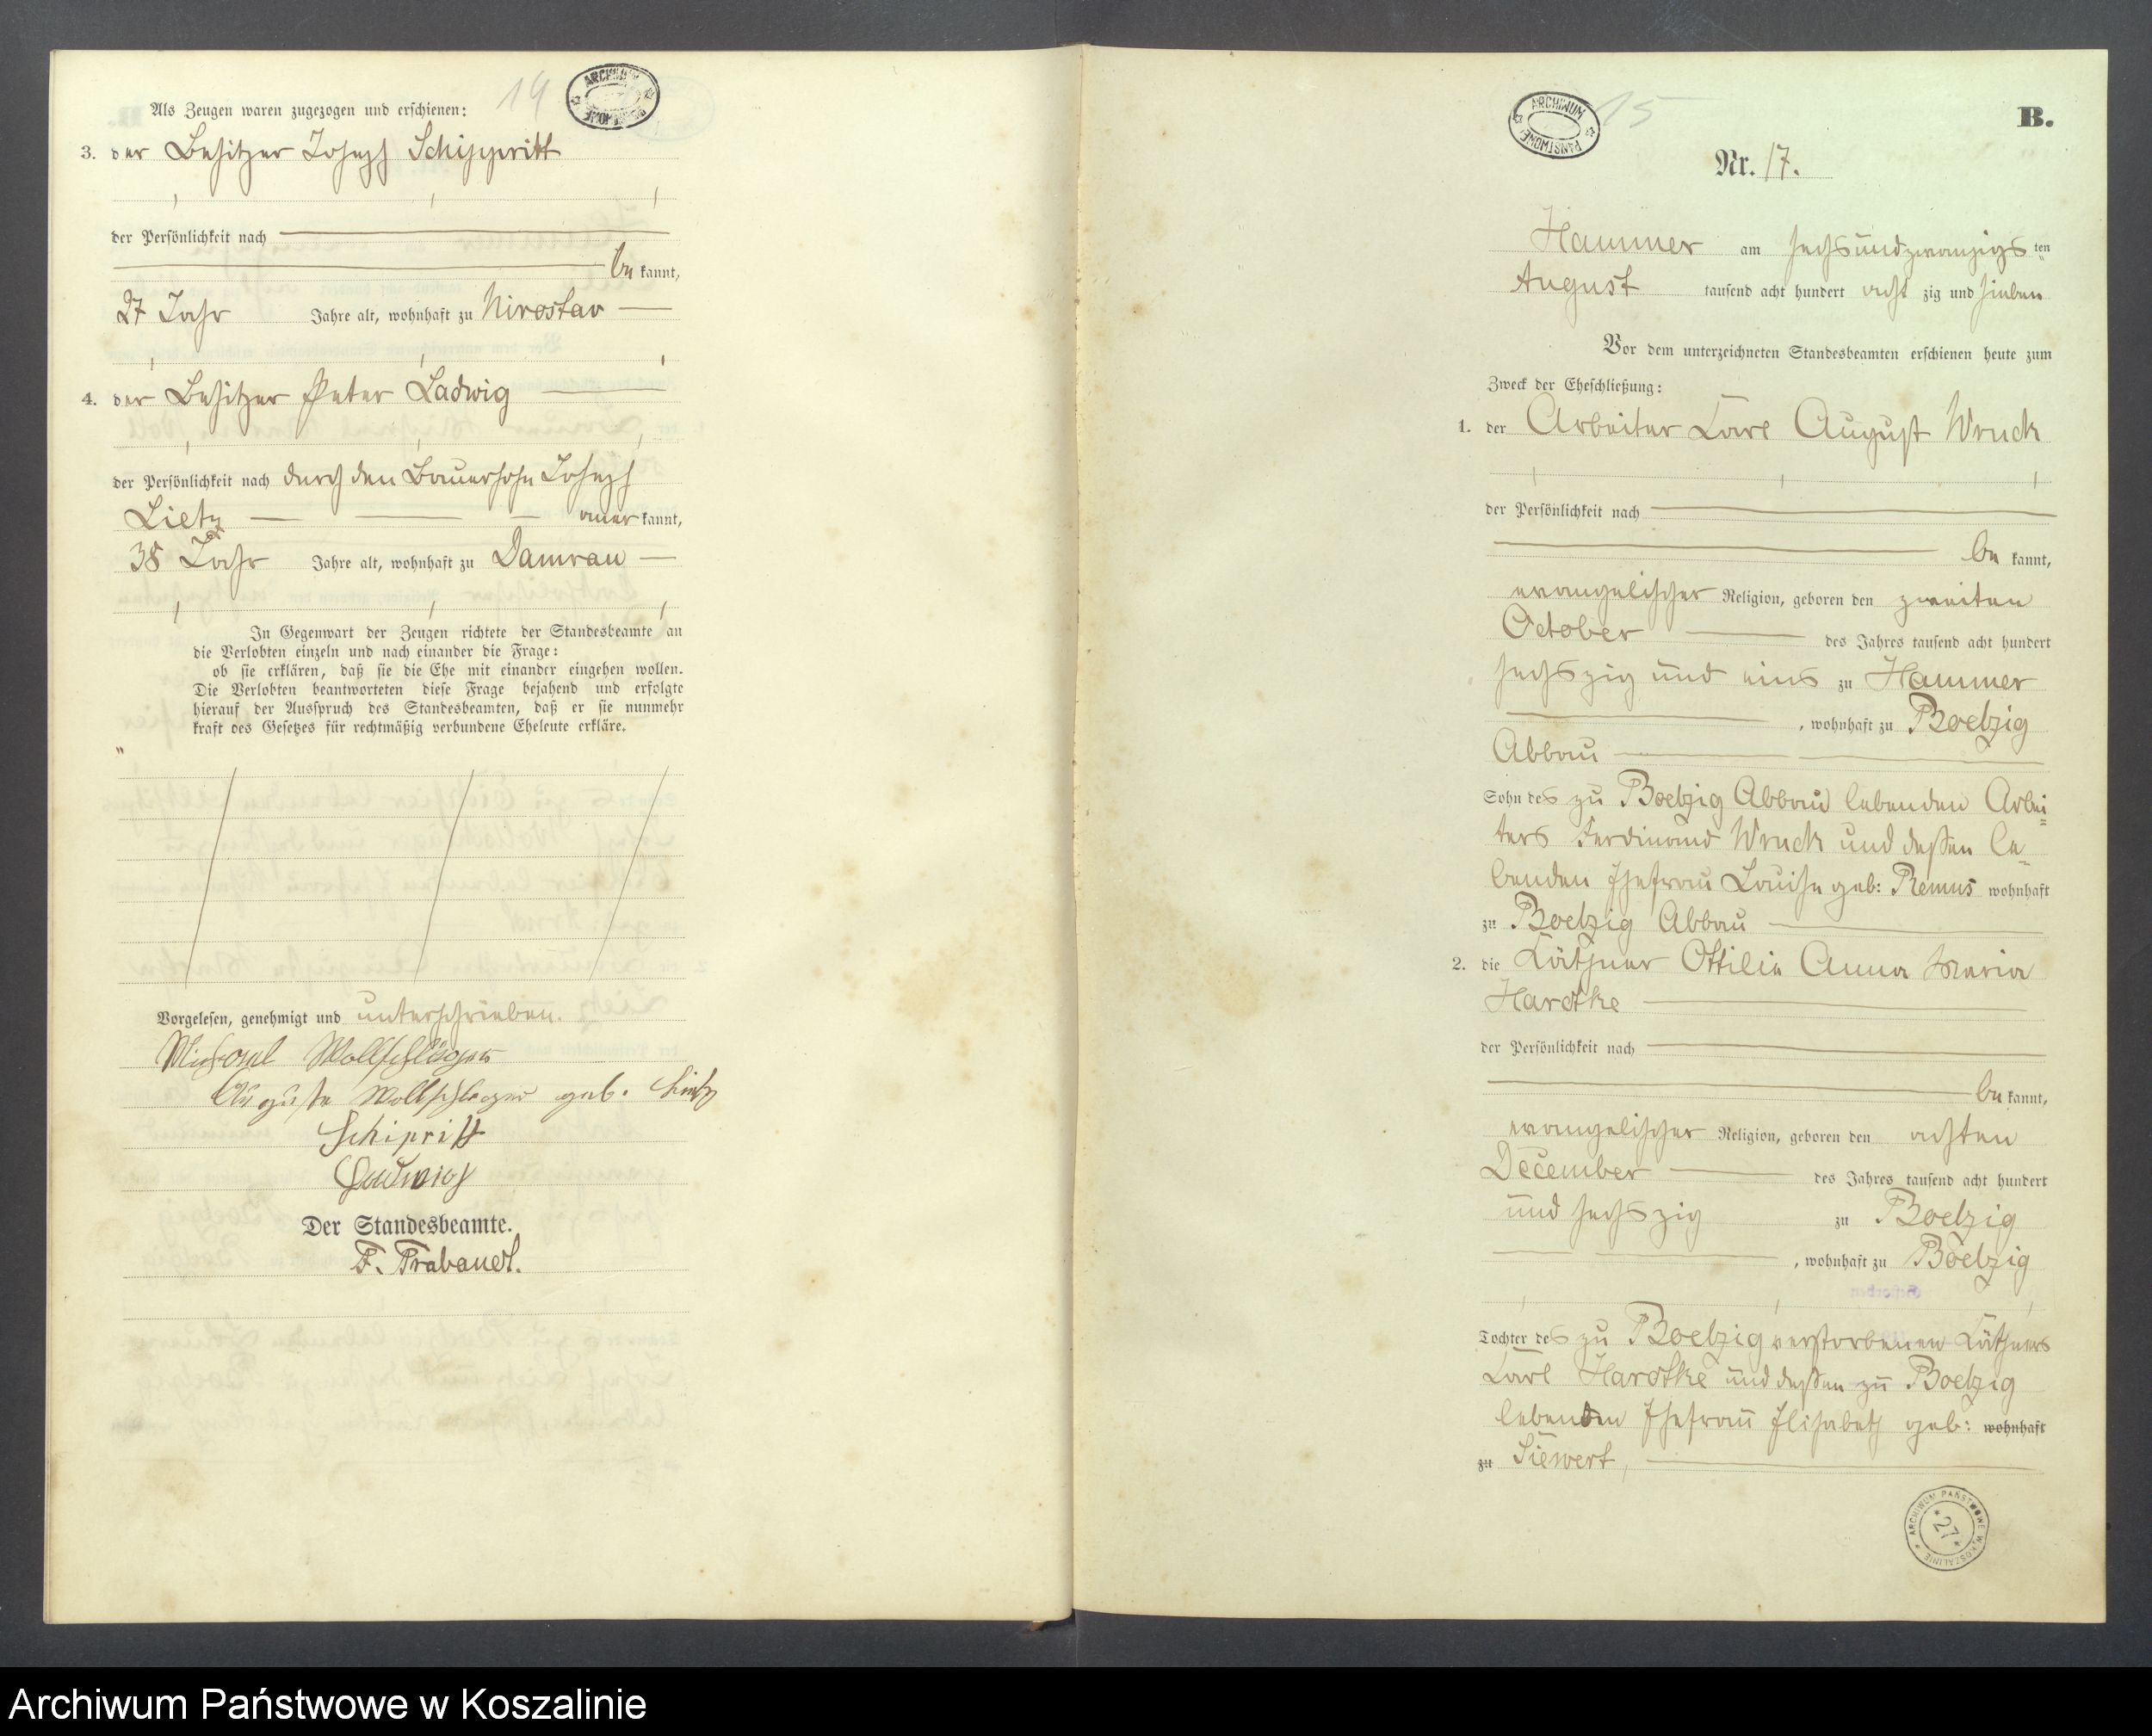 14
ARCHIWUM PAŃSTWOWE
Als Zeugen waren zugezogen und erschienen:
3. der Besitzer Joseph Schippritt
der Persönlichkeit nach
be kannt,
27 Jahr Jahre alt, wohnhaft zu Nirostav
4. der Besitzer Peter Ladwig
der Persönlichkeit nach durch den Bauersohn Joseph
Lietz anerkannt,
38 Jahr Jahre alt, wohnhaft zu Damrau
In Gegenwart der Zeugen richtete der Standesbeamte an
die Verlobten einzeln und nach einander die Frage:
ob sie erklären, daß sie die Ehe mit einander eingehen wollen.
Die Verlobten beantworteten diese Frage bejahend und erfolgte
hierauf der Ausspruch des Standesbeamten, daß er sie nunmehr
kraft des Gesetzes für rechtmäßig verbundene Eheleute erkläre.
Vorgelesen, genehmigt und unterschrieben.
Michael Wollschläger
Auguste Wollschläger geb. Lietz
Schipritt
Ladwig
Der Standesbeamte.
F. Prabandt.
ARCHIWUM PAŃSTWOWE
15
B.
Nr. 17.
Hammer am sechsundzwanzigs ten
August tausend acht hundert acht zig und sieben
Vor dem unterzeichneten Standesbeamten erschienen heute zum
Zweck der Eheschließung:
1. der Arbeiter Carl August Wruck
der Persönlichkeit nach
be kannt,
evangelischer Religion, geboren den zweiten
October des Jahres tausend acht hundert
sechszig und eins zu Hammer
, wohnhaft zu Boelzig
Abbau
Sohn des zu Boelzig Abbau lebenden Arbei=
ters Ferdinand Wruck und deßen le=
benden Ehefrau Louise geb: Remus wohnhaft
zu Boelzig Abbau
2. die Käthner Ottilie Anna Maria
Hardtke
der Persönlichkeit nach
be kannt,
evangelischer Religion, geboren den achten
December des Jahres tausend acht hundert
und sechszig zu Boelzig
, wohnhaft zu Boelzig
Tochter des zu Boelzig verstorbenen Käthners
Carl Hardtke und deßen zu Boelzig
lebenden Ehefrau Elisabeth geb: wohnhaft
zu Siewert,
ARCHIWUM PAŃSTWOWE W KOSZALINIE
*27*
Archiwum Państwowe w Koszalinie